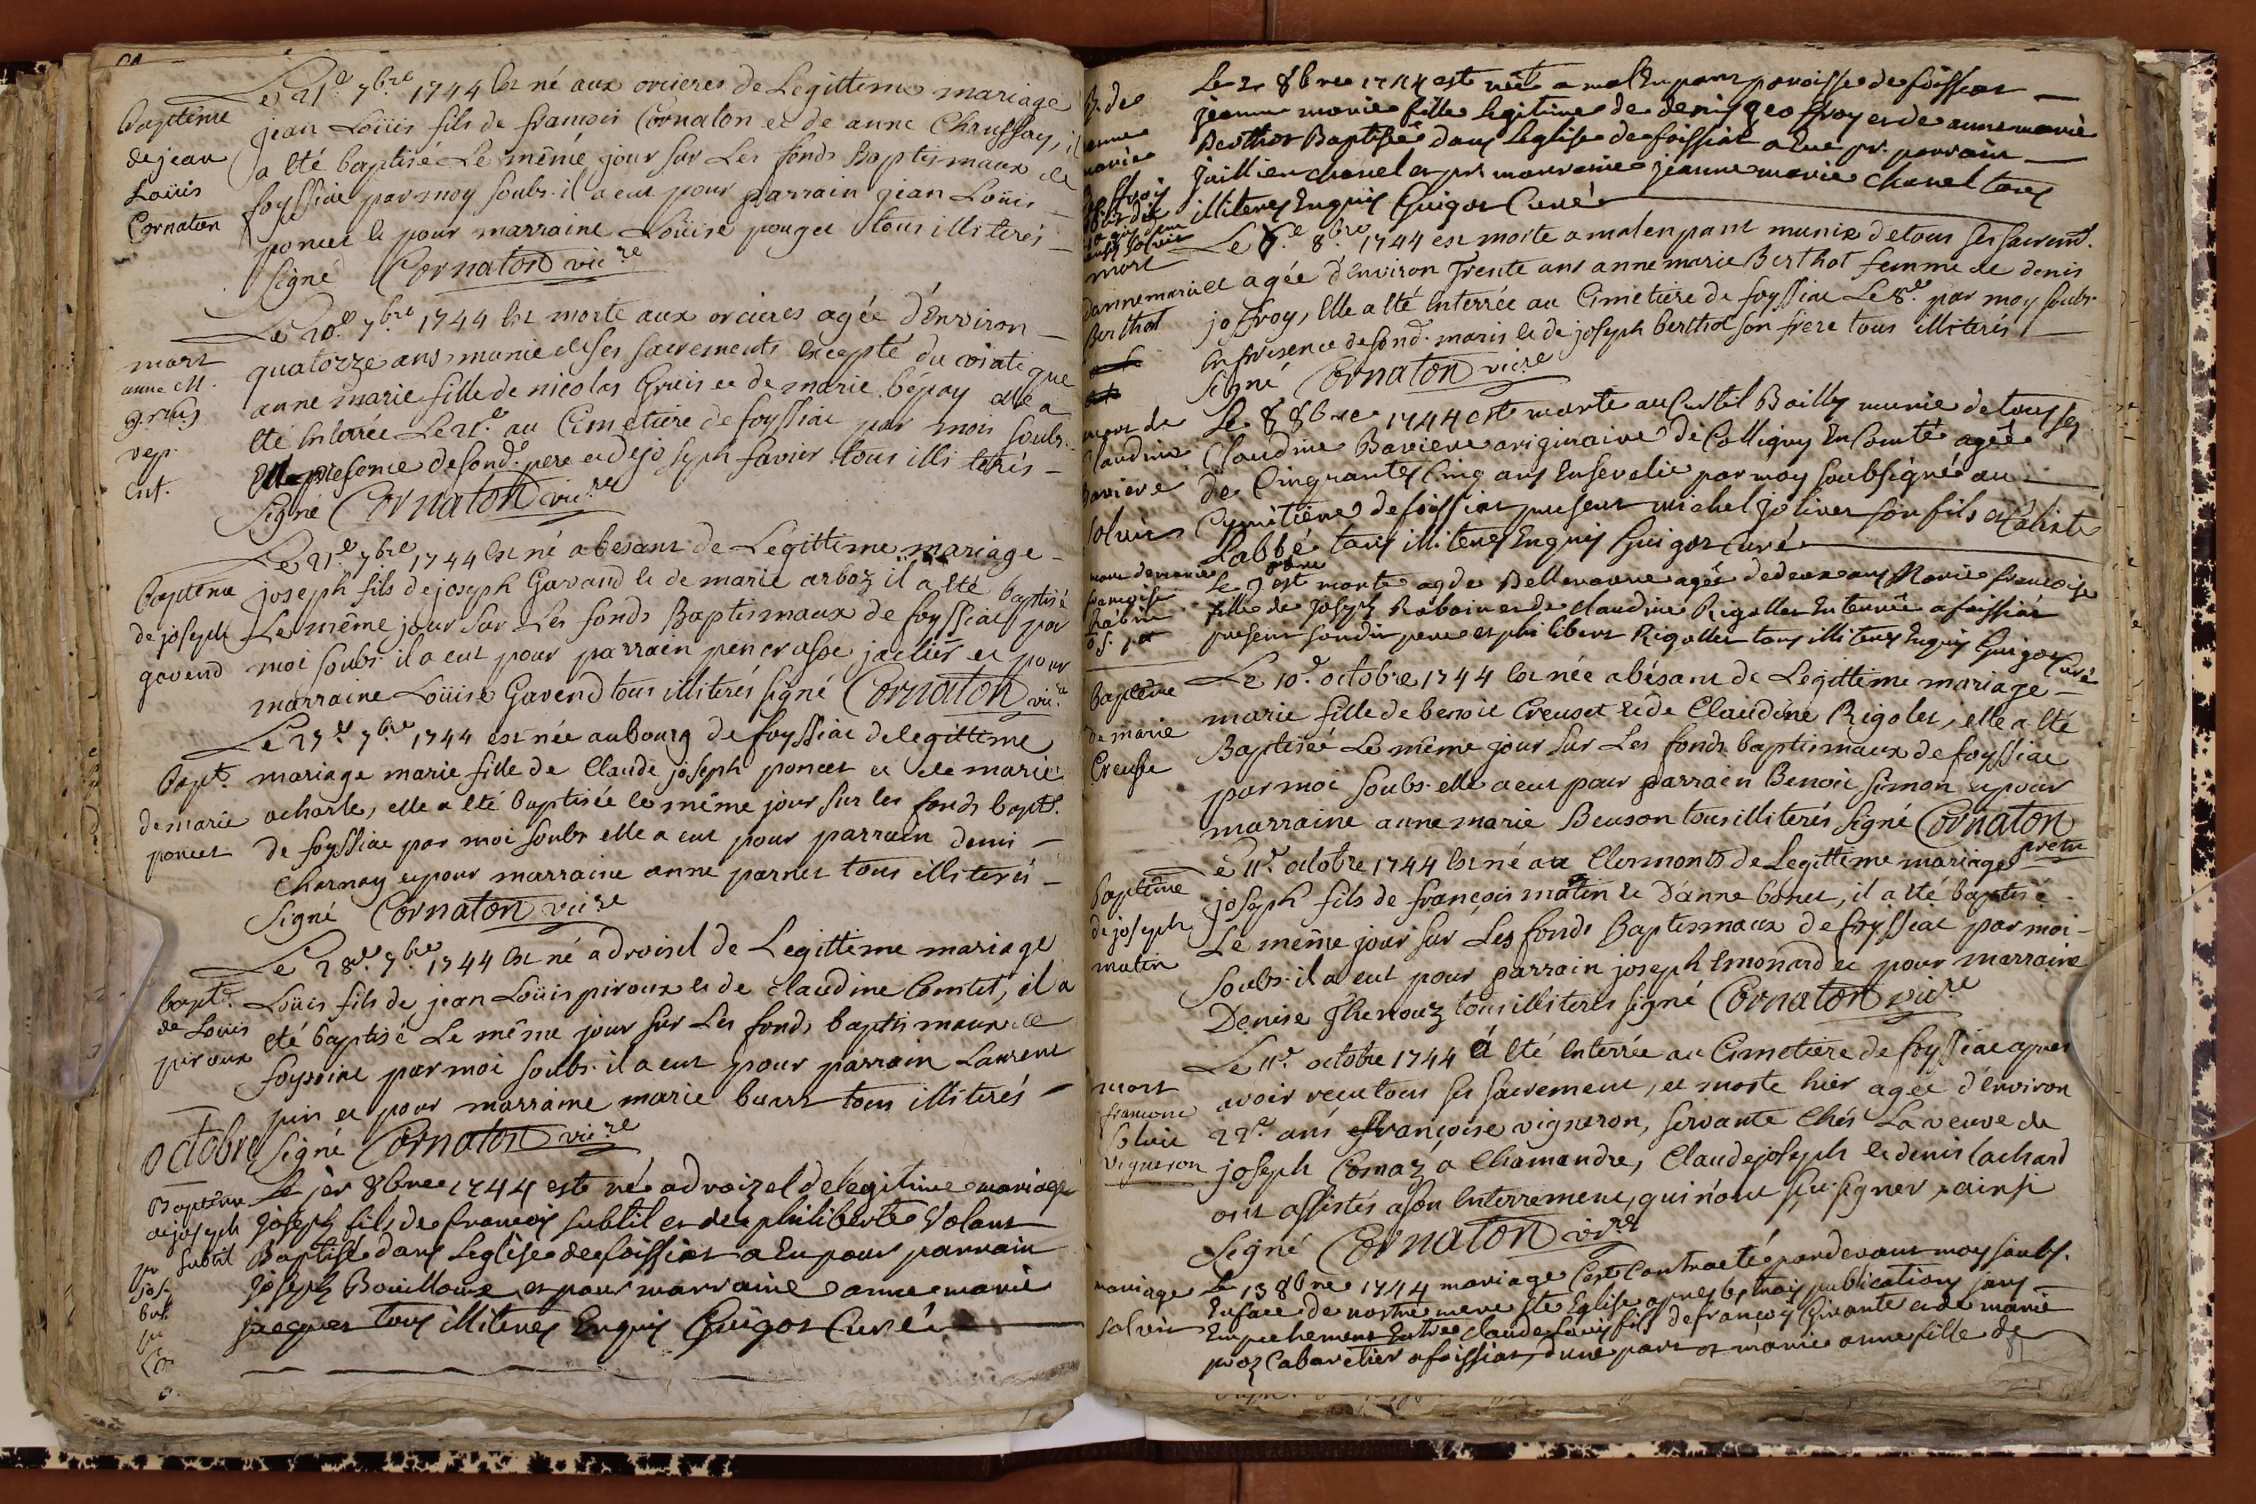 Baptême
de jean
Loüis
Cornaton
Le 21e 7bre 1744 est né aux orcieres de Legittime mariage
jean Loüis fils de francois Cornaton et de anne Chaussay, il
a eté baptisé Le même jour sur Les fonds Baptismaux de
foyssiac par moy soubs. il a eut pour parrain jean Loüis
poncet et pour marraine Loüise pouget tous illiterés
signé Cornaton vicre
mort
anne M.
vep.
ent.
Le 20e 7bre 1744 est morte aux orcieres agée d'Environ
quatorze ans munie de ses sacrements excepté du viatique
anne marie fille de nicolas Gruis et de marie bépay elle a
eté Enterrée Le 21e au Cimetiere de foyssiac par moi soubs.
En presence de sond. pere et de joseph favier tous illiterés
signé Cornaton vicre
Baptême
de joseph
gavend
Le 21e 7bre 1744 est né a besant de Legittime mariage
joseph fils de joseph Gavand et de marie arboz il a eté baptisé
Le même jour sur Les fonds Baptismaux de foyssiac par
moi soubs. il a eut pour parrain pencrasse jaclier et pour
marraine Loüise Gavend tous illiterés signé Cornaton vic.
Bapt.
de marie
poncet
Le 27e 7bre 1744 est née au bourg de foyssiac de legittime
mariage marie fille de Claude joseph poncet et de marie
acharle, elle a eté baptisée le même jour sur les fonds bapt.
de foyssiac par moi soubs elle a eut pour parrain deni
Charnay et pour marraine anne parnet tous illiterés
signé Cornaton vicre
bapt.
de Loüis
piroux
Le 28e 7bre 1744 est né a droisel de Legittime mariage
Loüis fils de jean Loüis piroux et de claudine Comtet, il a
eté baptisé Le même jour sur Les fonds baptismaux de
foyssiac par moi soubs. il a eut pour parrain Laurent
pin et pour marraine marie buart tous illiterés
signé Cornaton vicre
octobre
Baptême
de joseph
subtil
Le jer 8bre 1744 est né a droizel de legitime mariage
joseph fils de francois subtil et de philiberte Volant
Baptisé dans Leglise de foissiat a Eu pour parrain
joseph Bouilloux et pour marraine anne marie
jacquet tous illiteres Enquis Guigot Curé
B. de
jeanne
marie
Le 2 8bre 1744 est née a malenpant paroisse de foissiat
jeanne marie fille legitime de denis geoffroy et de anne marie
Berthot Baptisée dans Leglise de foissiat a Eue pr. parrain
juillien chanel et pr. marraine jeanne marie chanel tous
illiteres Enquis Guigot Curé
mort
d'anne marie
Berthot
Le 7e 8bre 1744 est morte a malenpant munie de tous ses sacremt.
et agée d'environ Trente ans anne marie Berthot femme de denis
jofroy, Elle a eté Enterrée au Cimetiere de foyssiac Le 8e par moy soubs.
En presence de sond. maris et de joseph berthot son frere tous illiterés
signé Cornaton vicre
mort de
Claudine
Baviere
solvit
Le 8 8bre 1744 est morte au Curtil Bailly munie de tous ses
Claudine Baviere originaire de Colligny En Comté agée
de Cinquante Cinq ans Ensevelie par moy soubsigné au
Cymetiere de foissiat present michel joliver son fils et Calixte
Labbé tous illiteres Enquis Guigot Curé
mort de marie
francoise
Le 9 8bre est morte agde Bellevavre agée de deux ans Marie francoise
fille de joseph Rabain et de claudine Rigollet Enterrée a foissiat
present son dit pere et philibert Rigollet tous illiteres Enquis Guigot Curé
Baptême
de marie
Creuse
Le 10e octobre 1744 est née a bésant de Legittime mariage
marie fille de benoit Creuset et de Claudine Rigolet, elle a eté
Baptisée Le même jour sur Les fonds baptismaux de foyssiac
par moi soubs. elle a eut pour parrain Benoit simon et pour
marraine anne marie Beuson tous illiterés signé Cornaton
pretre
Baptême
de joseph
matin
Le 11e octobre 1744 est né aux Clermonts de Legittime mariage
joseph fils de françois matin et D'anne bonet, il a eté baptisé
Le même jour sur Les fonds Baptismaux de foyssiac par moi
soubs. il a eut pour parrain joseph Emonard et pour marraine
Denise Thenouz tous illiterés signé Cornaton vicre
mort
francoise
solvit
vigneron
Le 11e octobre 1744 á eté Enterrée au Cimetiere de foyssiac apres
avoir recu tous ses sacrement, et morte hier agée d'Environ
22e ans françoise vigneron, servante Chés La veuve de
joseph Comaz a Chamandre, Claude joseph et denis Lachard
ont assistés a son Enterrement, qui n'ont sçu signer, ainsi
signé Cornaton vicre
mariage
solvit
Le 13 8bre 1744 mariage s'est Contracté pardevant moy soubs.
En face de nostre mere ste Eglise apres les trois publications sans
Empechement Entre claude Louis fils de françois Givante et de marie
proz Cabaretier a foissiat, d'une part et marie anne fille de